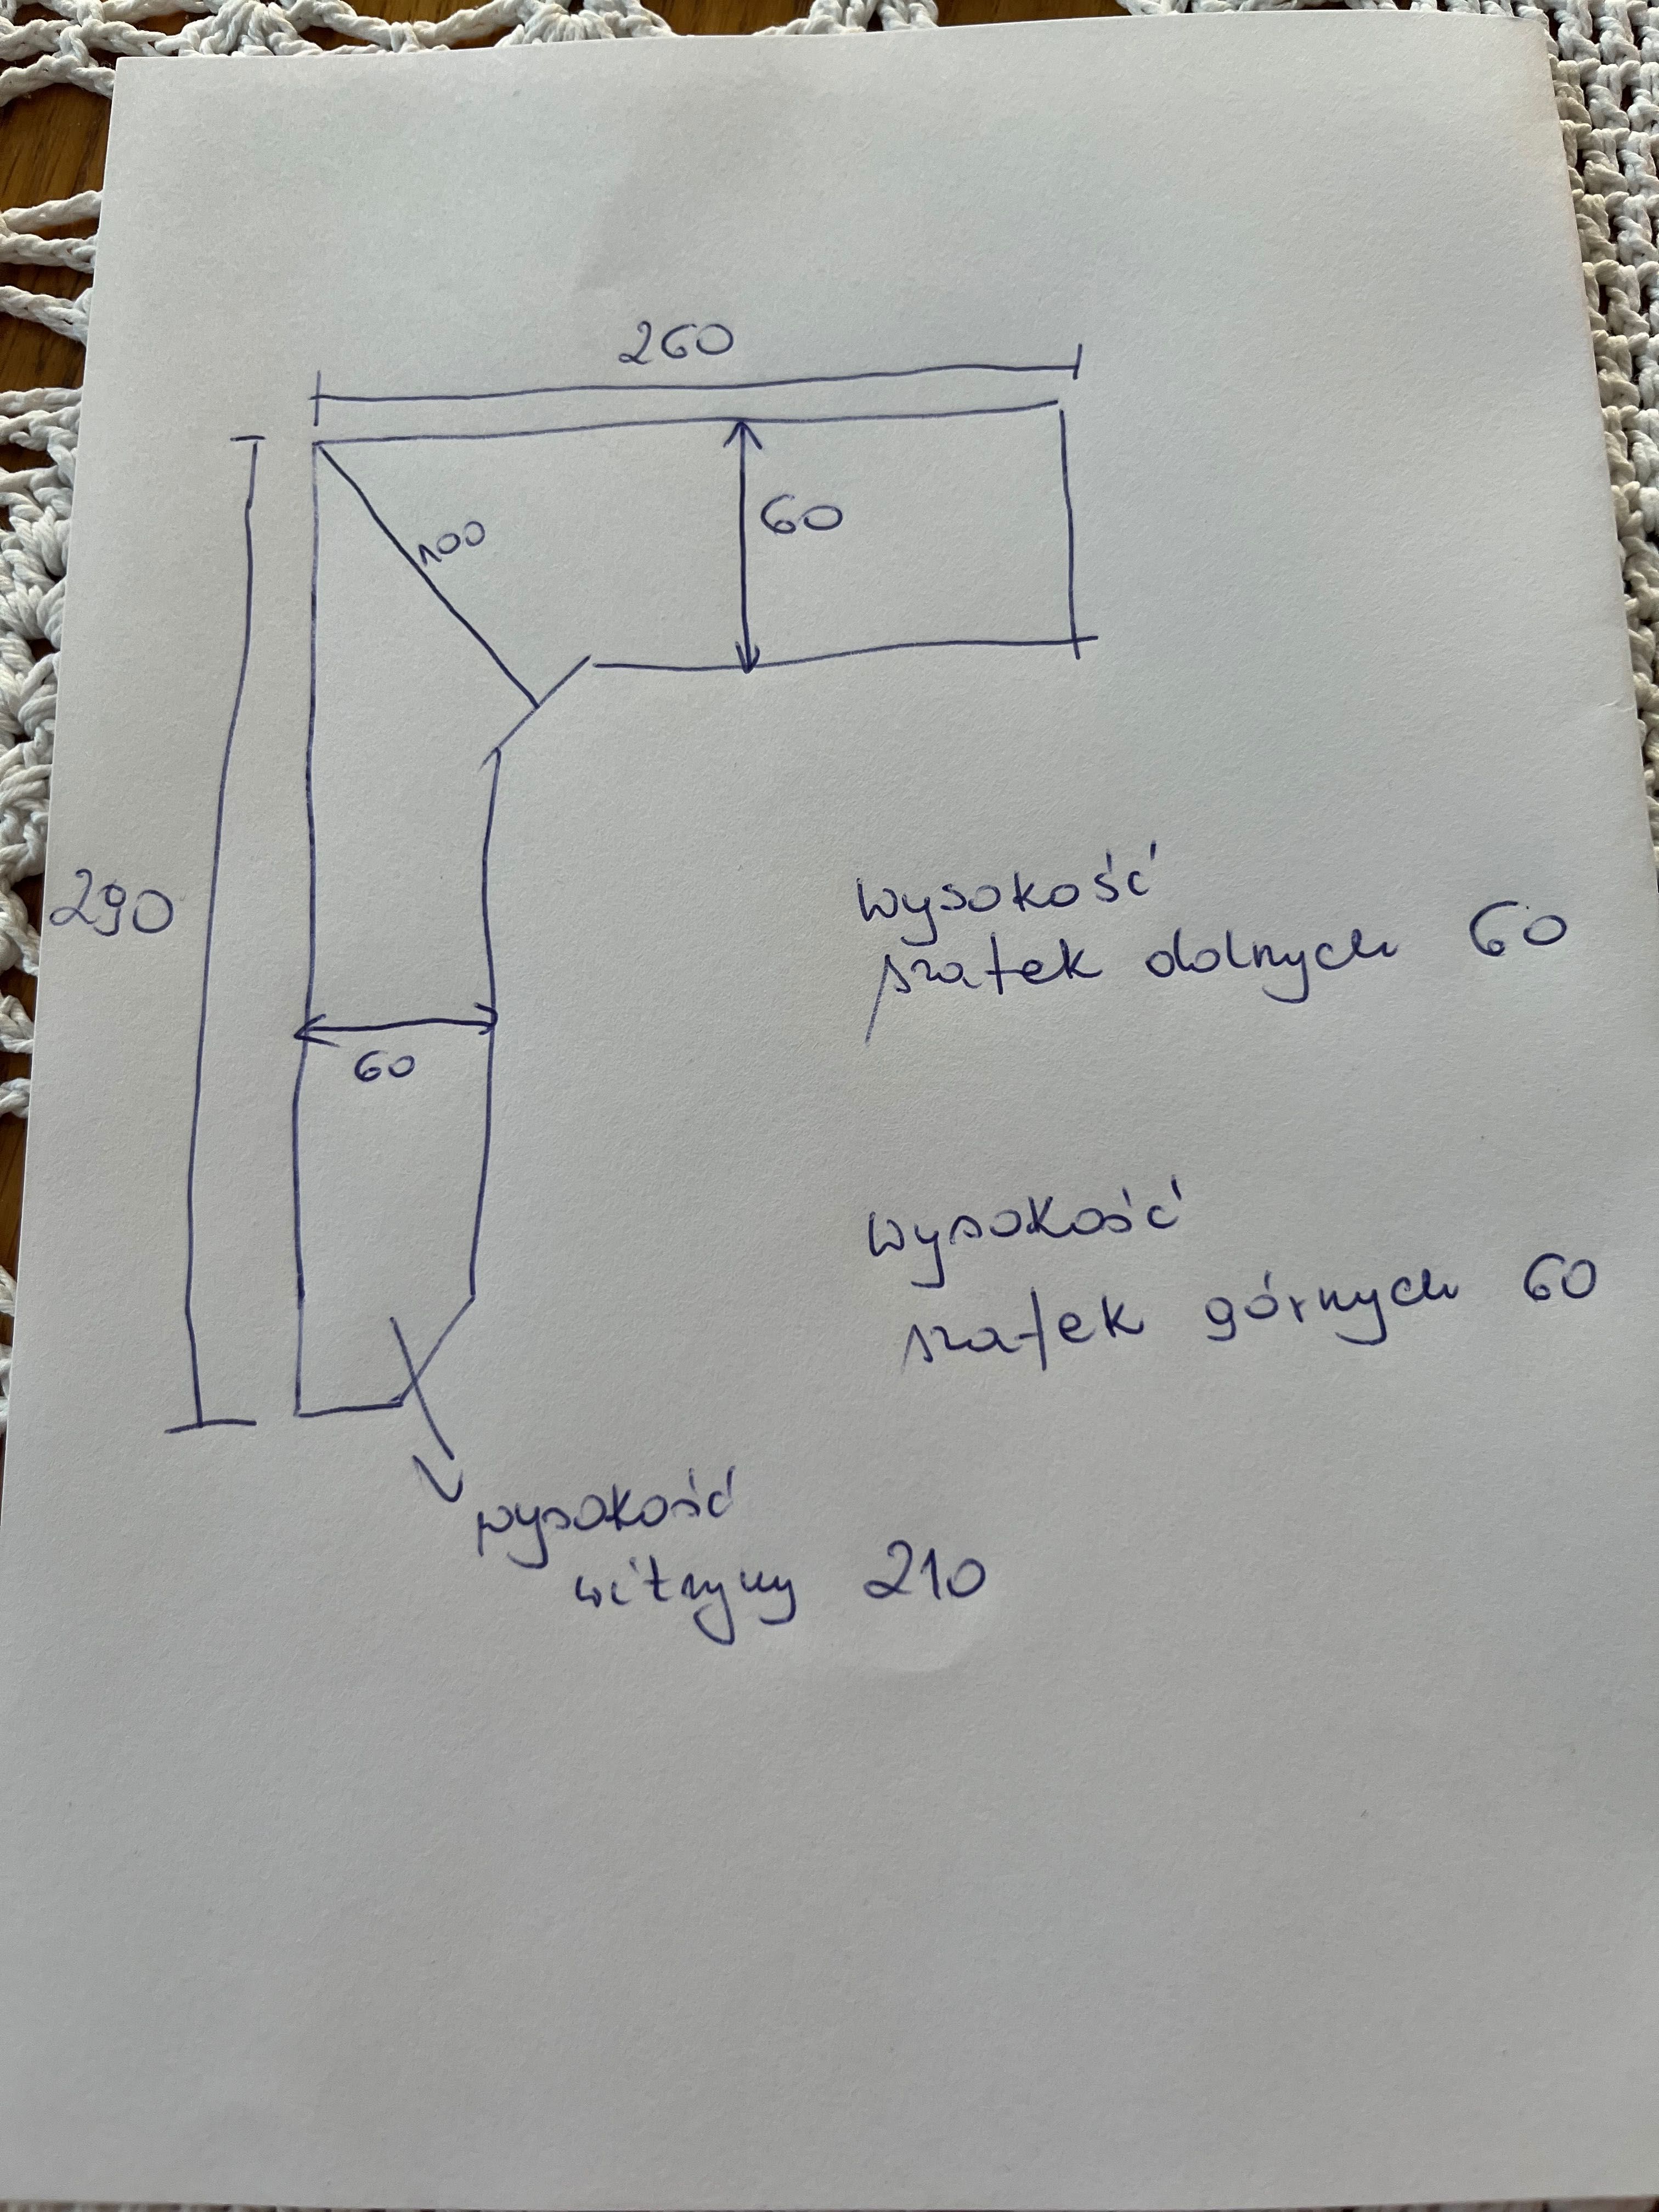 260
100
60
290
60
wysokość
szafek dolnych 60
wysokość
szafek górnych 60
wysokość
witryny 210